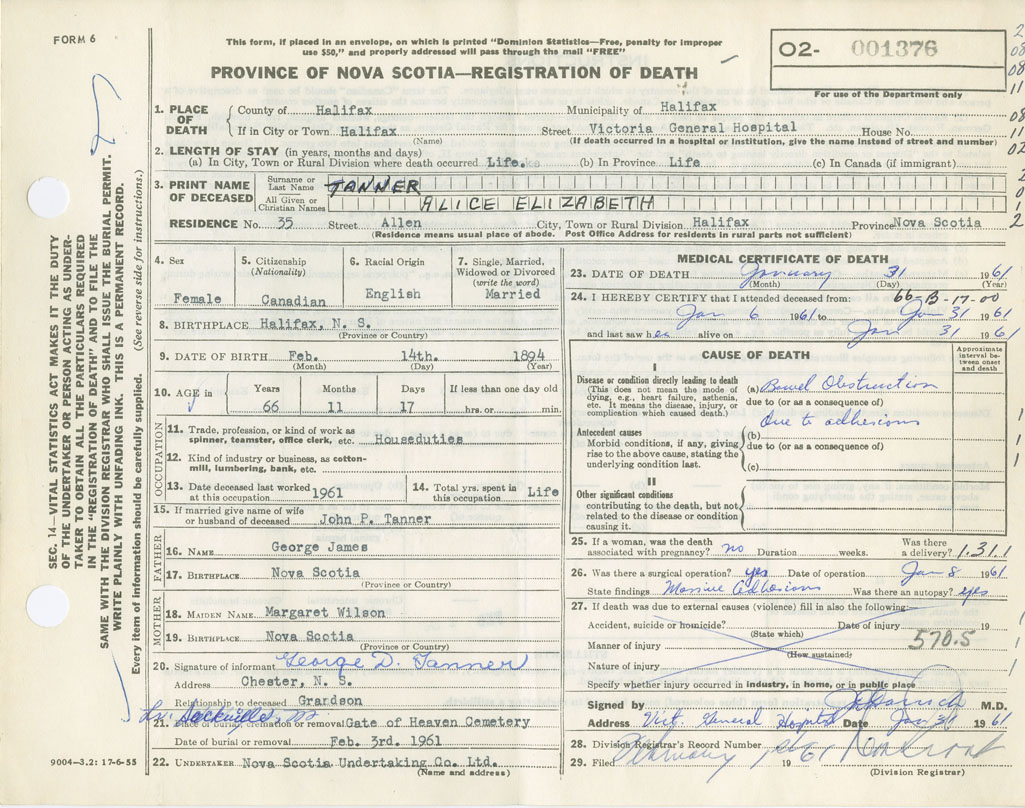 FORM 6
This form, if placed in an envelope, on which is printed "Dominion Statistics—Free, penalty for improper
use $50," and properly addressed will pass through the mail "FREE"
PROVINCE OF NOVA SCOTIA—REGISTRATION OF DEATH
02- 001376
For use of the Department only
SEC. 14—VITAL STATISTICS ACT MAKES IT THE DUTY
OF THE UNDERTAKER OR PERSON ACTING AS UNDER-
TAKER TO OBTAIN ALL THE PARTICULARS REQUIRED
IN THE "REGISTRATION OF DEATH" AND TO FILE THE
SAME WITH THE DIVISION REGISTRAR WHO SHALL ISSUE THE BURIAL PERMIT.
WRITE PLAINLY WITH UNFADING INK. THIS IS A PERMANENT RECORD.
Every item of information should be carefully supplied. (See reverse side for instructions.)
1. PLACE OF DEATH
County of Halifax Municipality of Halifax
If in City or Town Halifax Street Victoria General Hospital House No.
(Name) (If death occurred in a hospital or institution, give the name instead of street and number)
2. LENGTH OF STAY (in years, months and days)
(a) In City, Town or Rural Division where death occurred Life. (b) In Province Life. (c) In Canada (if immigrant)
3. PRINT NAME OF DECEASED
Surname or Last Name TANNER
All Given or Christian Names ALICE ELIZABETH
RESIDENCE No. 35 Street Allen City, Town or Rural Division Halifax Province Nova Scotia
(Residence means usual place of abode. Post Office Address for residents in rural parts not sufficient)
4. Sex
Female
5. Citizenship
(Nationality)
Canadian
6. Racial Origin
English
7. Single, Married,
Widowed or Divorced
(write the word)
Married
8. BIRTHPLACE Halifax, N. S.
(Province or Country)
9. DATE OF BIRTH Feb. 14th. 1894
(Month) (Day) (Year)
10. AGE in Years Months Days If less than one day old
66 11 17 hrs. or min.
OCCUPATION
11. Trade, profession, or kind of work as
spinner, teamster, office clerk, etc. Houseduties
12. Kind of industry or business, as cotton-
mill, lumbering, bank, etc.
13. Date deceased last worked
at this occupation 1961
14. Total yrs. spent in
this occupation Life
15. If married give name of wife
or husband of deceased John P. Tanner
FATHER
16. NAME George James
17. BIRTHPLACE Nova Scotia
(Province or Country)
MOTHER
18. MAIDEN NAME Margaret Wilson
19. BIRTHPLACE Nova Scotia
(Province or Country)
20. Signature of informant George D. Tanner
Address Chester, N. S.
Relationship to deceased Grandson
21. Place of burial, cremation or removal Gate of Heaven Cemetery
Date of burial or removal Feb. 3rd. 1961
22. UNDERTAKER Nova Scotia Undertaking Co. Ltd.
(Name and address)
9004—3.2: 17-6-55
MEDICAL CERTIFICATE OF DEATH
23. DATE OF DEATH January 31 1961
(Month) (Day) (Year)
24. I HEREBY CERTIFY that I attended deceased from:
66-B-17-00
Jan 6 1961 to Jan 31 1961
and last saw her alive on Jan 31 1961
CAUSE OF DEATH
Approximate interval between onset and death
I
Disease or condition directly leading to death
(This does not mean the mode of
dying, e.g., heart failure, asthenia,
etc. It means the disease, injury, or
complication which caused death.)
(a) Bowel Obstruction
due to (or as a consequence of)
Due to adhesions
Antecedent causes
Morbid conditions, if any, giving
rise to the above cause, stating the
underlying condition last.
(b)
due to (or as a consequence of)
(c)
II
Other significant conditions
contributing to the death, but not
related to the disease or condition
causing it.
25. If a woman, was the death
associated with pregnancy? no Duration weeks. Was there
a delivery? 1.31.1
26. Was there a surgical operation? yes Date of operation Jan 8 1961
State findings Massive Adhesions Was there an autopsy? yes
27. If death was due to external causes (violence) fill in also the following:
Accident, suicide or homicide? Date of injury 19
(State which)
Manner of injury 570.5
(How sustained)
Nature of injury
Specify whether injury occurred in industry, in home, or in public place
Signed by M.D.
Address Vict. General Hospital Date Jan 31 1961
28. Division Registrar's Record Number
29. Filed February 1961
(Division Registrar)